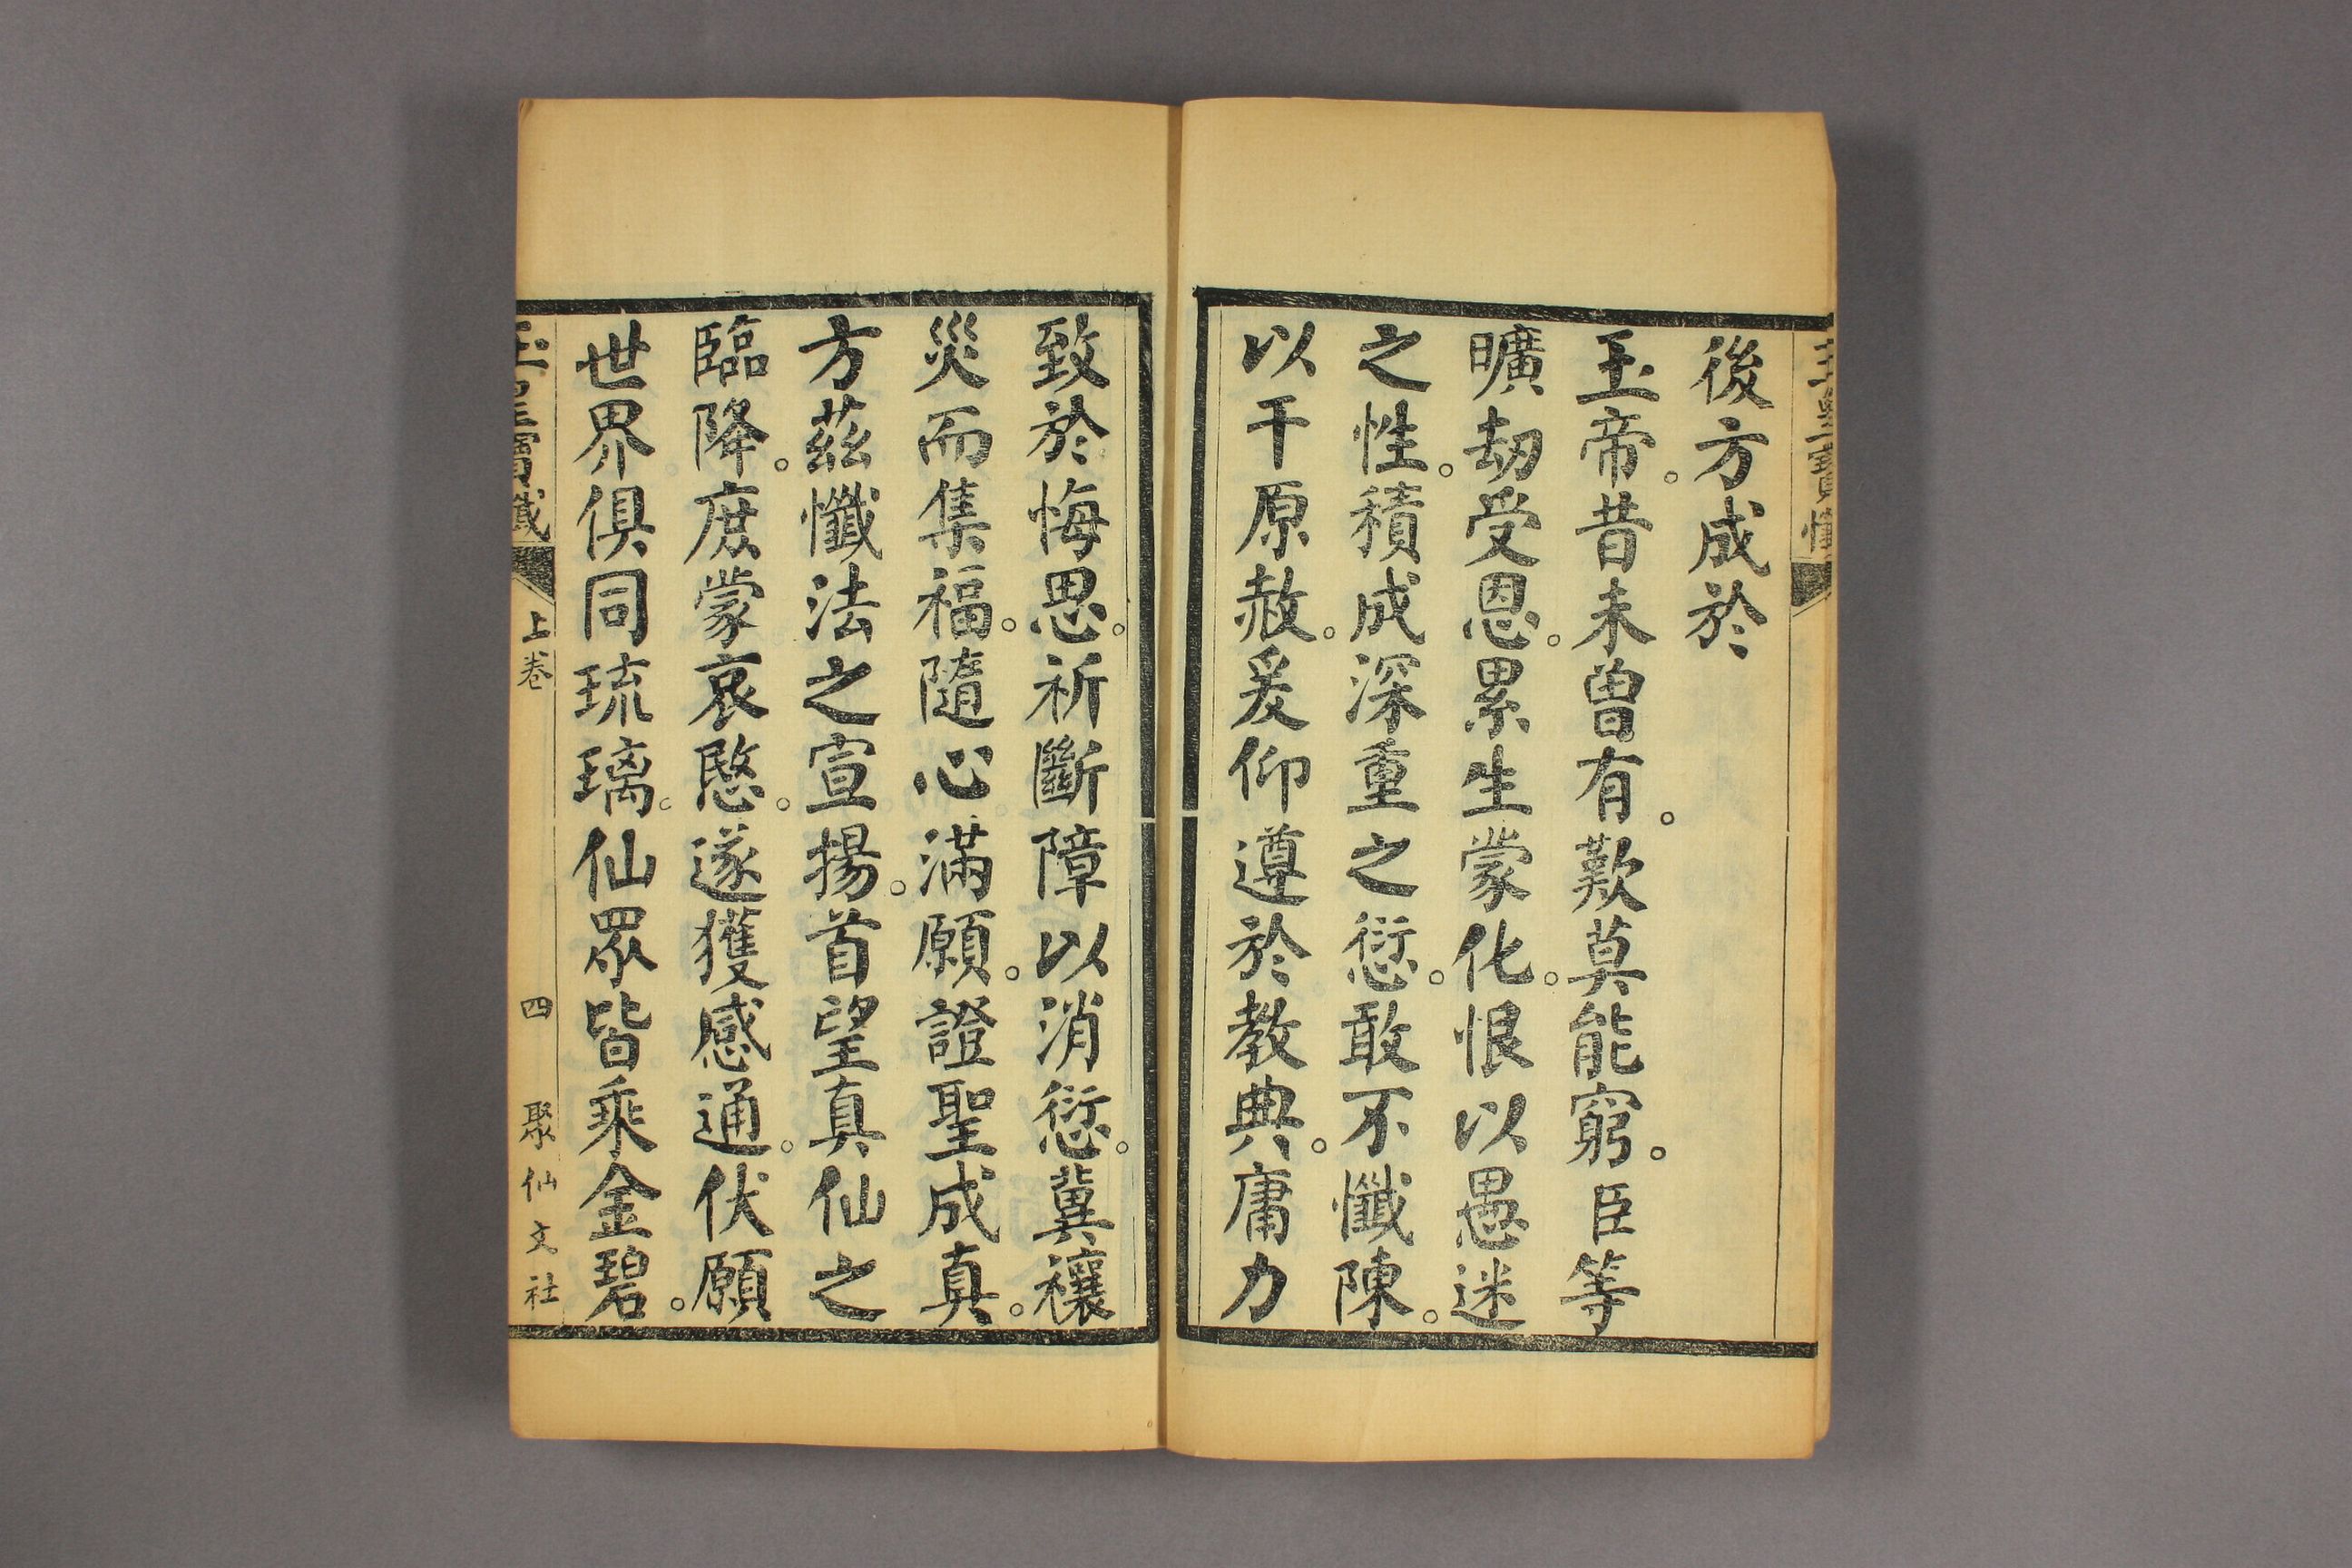 後方成於
玉帝。昔未曾有。歎莫能窮。臣等
曠劫受恩。累生蒙化。恨以愚迷
之性。積成深重之愆。敢不懺陳。
以干原赦。爰仰遵於教典。庸力
致於悔思。祈斷障以消愆。冀禳
災而集福。隨心滿願。證聖成真。
方茲懺法之宣揚。首望真仙之
臨降。庶蒙哀愍。遂獲感通。伏願
世界俱同琉璃。仙眾皆乘金碧。
玉皇寶懺 上卷 四 聚仙文社